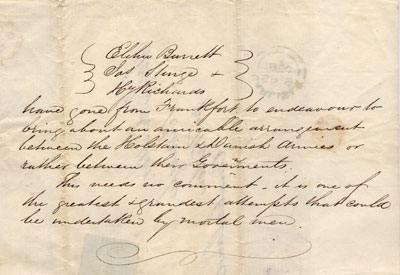 Elihu Burrett
Jos Sturge &
Hy Richards
have gone from Frankfort to endeavour to
bring about an amicable arrangement
between the Holstein & Danish Armies or
rather between their Governmts.
This needs no comment - it is one of
the greatest & grandest attempts that could
be undertaken by mortal men.